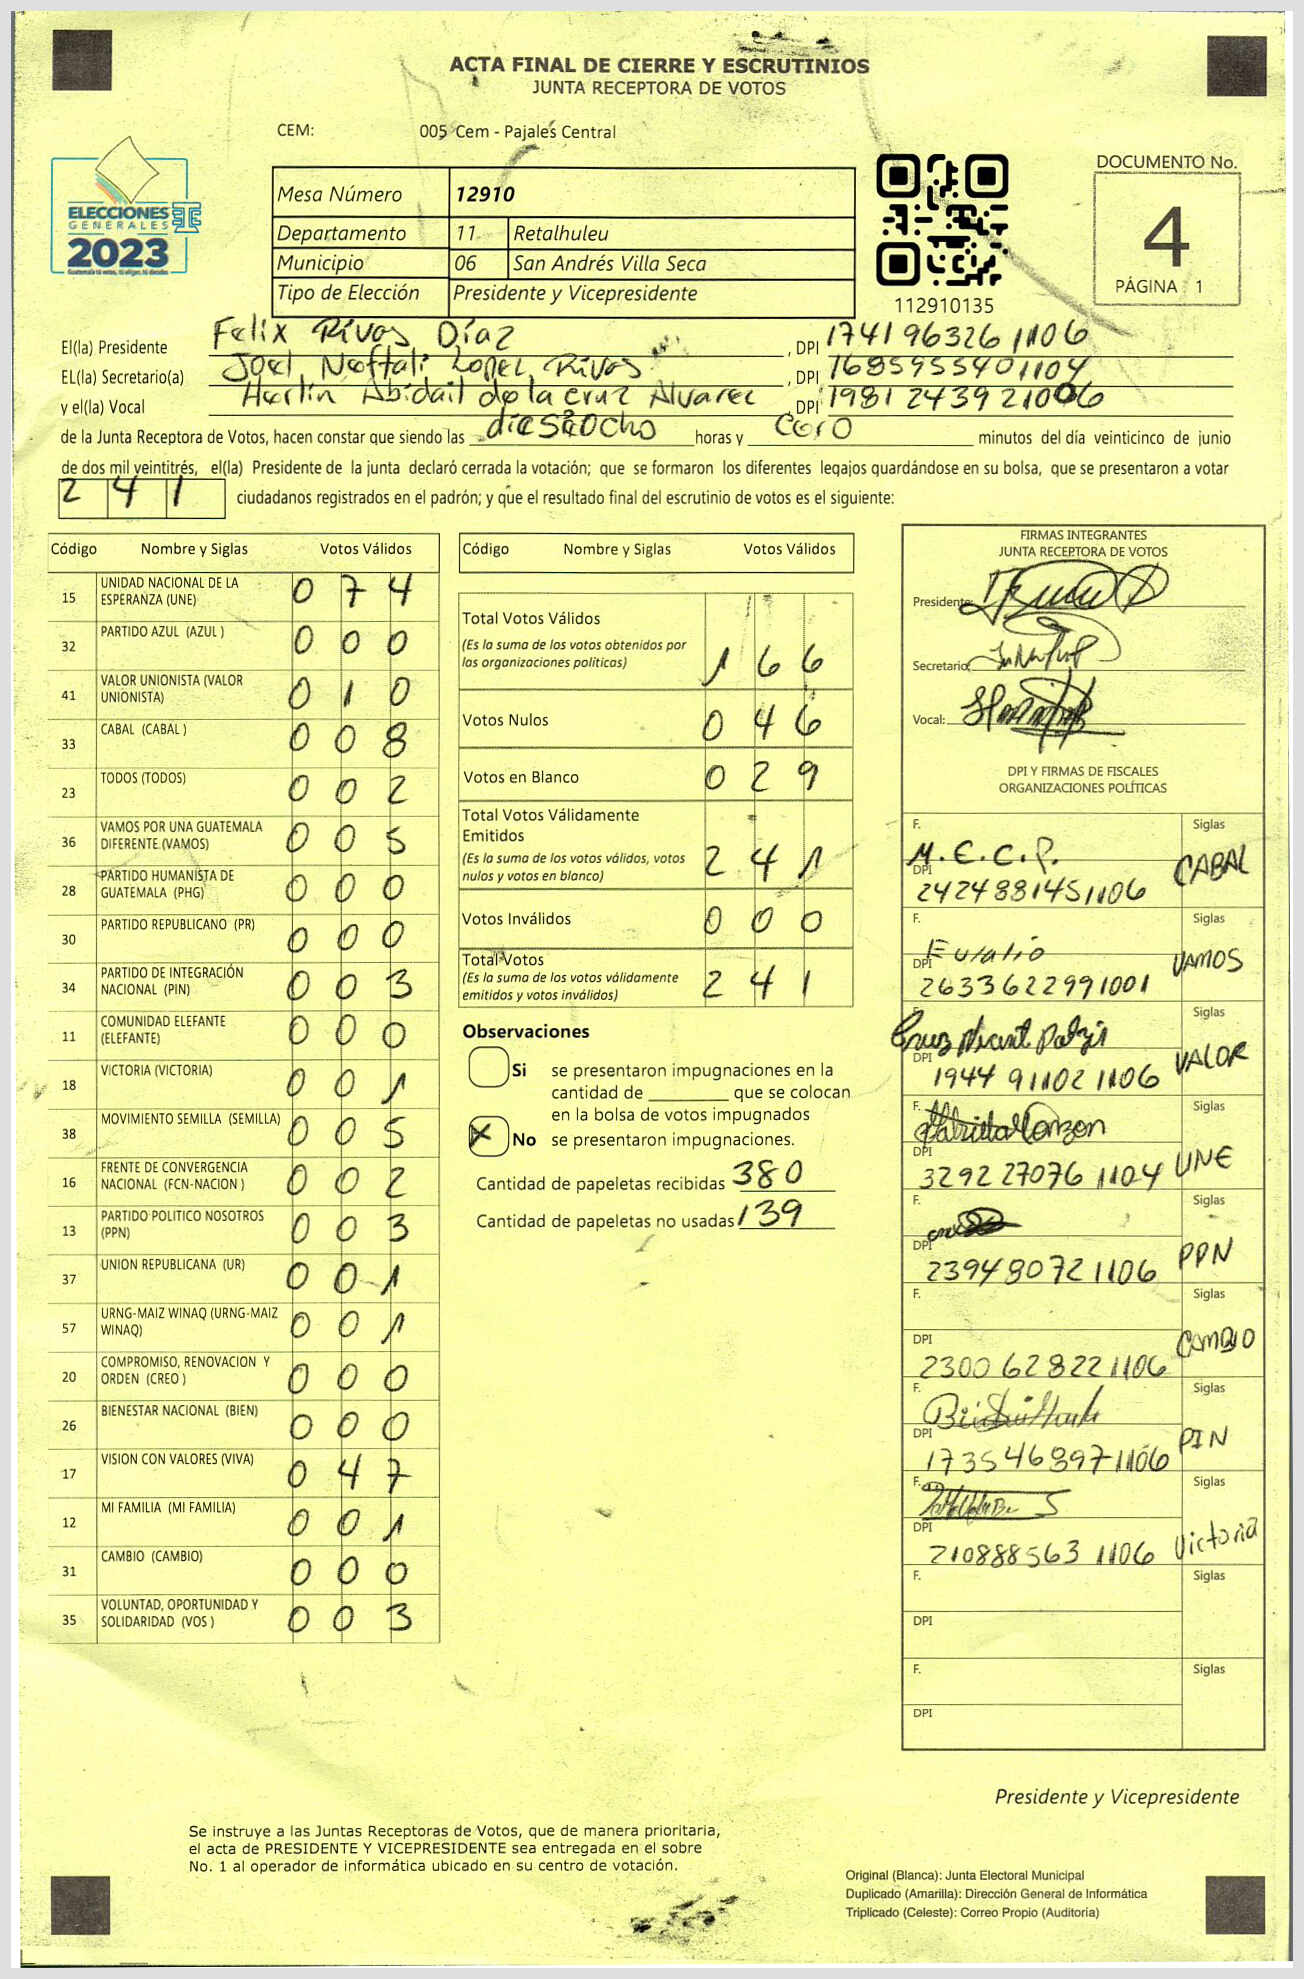 ACTA FINAL DE CIERRE Y ESCRUTINIOS
JUNTA RECEPTORA DE VOTOS
CEM: 005 Cem - Pajales Central
ELECCIONES
GENERALES
2023
Guatemala tú votas, tú eliges, tú decides
Mesa Número 12910
Departamento 11 Retalhuleu
Municipio 06 San Andrés Villa Seca
Tipo de Elección Presidente y Vicepresidente
112910135
DOCUMENTO No.
4
PÁGINA 1
El(la) Presidente Felix Rivas Díaz, DPI 1741963261106
EL(la) Secretario(a) Joel Neftali Lopez Rivas, DPI 1685955401104
y el(la) Vocal Herlin Abidail de la cruz Alvarez, DPI 1981243921006
de la Junta Receptora de Votos, hacen constar que siendo las diesaocho horas y cero minutos del día veinticinco de junio
de dos mil veintitrés, el(la) Presidente de la junta declaró cerrada la votación; que se formaron los diferentes legajos guardándose en su bolsa, que se presentaron a votar
241 ciudadanos registrados en el padrón; y que el resultado final del escrutinio de votos es el siguiente:
Código Nombre y Siglas Votos Válidos
15 UNIDAD NACIONAL DE LA ESPERANZA (UNE) 074
32 PARTIDO AZUL (AZUL ) 000
41 VALOR UNIONISTA (VALOR UNIONISTA) 010
33 CABAL (CABAL ) 008
23 TODOS (TODOS) 002
36 VAMOS POR UNA GUATEMALA DIFERENTE (VAMOS) 005
28 PARTIDO HUMANISTA DE GUATEMALA (PHG) 000
30 PARTIDO REPUBLICANO (PR) 000
34 PARTIDO DE INTEGRACIÓN NACIONAL (PIN) 003
11 COMUNIDAD ELEFANTE (ELEFANTE) 000
18 VICTORIA (VICTORIA) 001
38 MOVIMIENTO SEMILLA (SEMILLA) 005
16 FRENTE DE CONVERGENCIA NACIONAL (FCN-NACION ) 002
13 PARTIDO POLITICO NOSOTROS (PPN) 003
37 UNION REPUBLICANA (UR) 001
57 URNG-MAIZ WINAQ (URNG-MAIZ WINAQ) 001
20 COMPROMISO, RENOVACION Y ORDEN (CREO ) 000
26 BIENESTAR NACIONAL (BIEN) 000
17 VISION CON VALORES (VIVA) 047
12 MI FAMILIA (MI FAMILIA) 001
31 CAMBIO (CAMBIO) 000
35 VOLUNTAD, OPORTUNIDAD Y SOLIDARIDAD (VOS ) 003
Código Nombre y Siglas Votos Válidos
Total Votos Válidos
(Es la suma de los votos obtenidos por las organizaciones políticas) 166
Votos Nulos 046
Votos en Blanco 029
Total Votos Válidamente Emitidos
(Es la suma de los votos válidos, votos nulos y votos en blanco) 241
Votos Inválidos 000
Total Votos
(Es la suma de los votos válidamente emitidos y votos inválidos) 241
Observaciones
Si se presentaron impugnaciones en la
cantidad de ________ que se colocan
en la bolsa de votos impugnados
X No se presentaron impugnaciones.
Cantidad de papeletas recibidas 380
Cantidad de papeletas no usadas 139
FIRMAS INTEGRANTES
JUNTA RECEPTORA DE VOTOS
Presidente:
Secretario:
Vocal:
DPI Y FIRMAS DE FISCALES
ORGANIZACIONES POLÍTICAS
F. M.E.C.P. Siglas CABAL
DPI 2424881451106
F. Eulalio Siglas VAMOS
DPI 2633622991001
F. Cruz Siglas VALOR
DPI 1944911021106
F. Monzon Siglas UNE
DPI 3292270761104
F. Siglas PPN
DPI 2394807211106
F. Siglas CAMBIO
DPI 2300628221106
F. Siglas PIN
DPI 1735468971106
F. Siglas Victoria
DPI 2108885631106
F. Siglas
DPI
F. Siglas
DPI
Presidente y Vicepresidente
Se instruye a las Juntas Receptoras de Votos, que de manera prioritaria,
el acta de PRESIDENTE Y VICEPRESIDENTE sea entregada en el sobre
No. 1 al operador de informática ubicado en su centro de votación.
Original (Blanca): Junta Electoral Municipal
Duplicado (Amarilla): Dirección General de Informática
Triplicado (Celeste): Correo Propio (Auditoría)